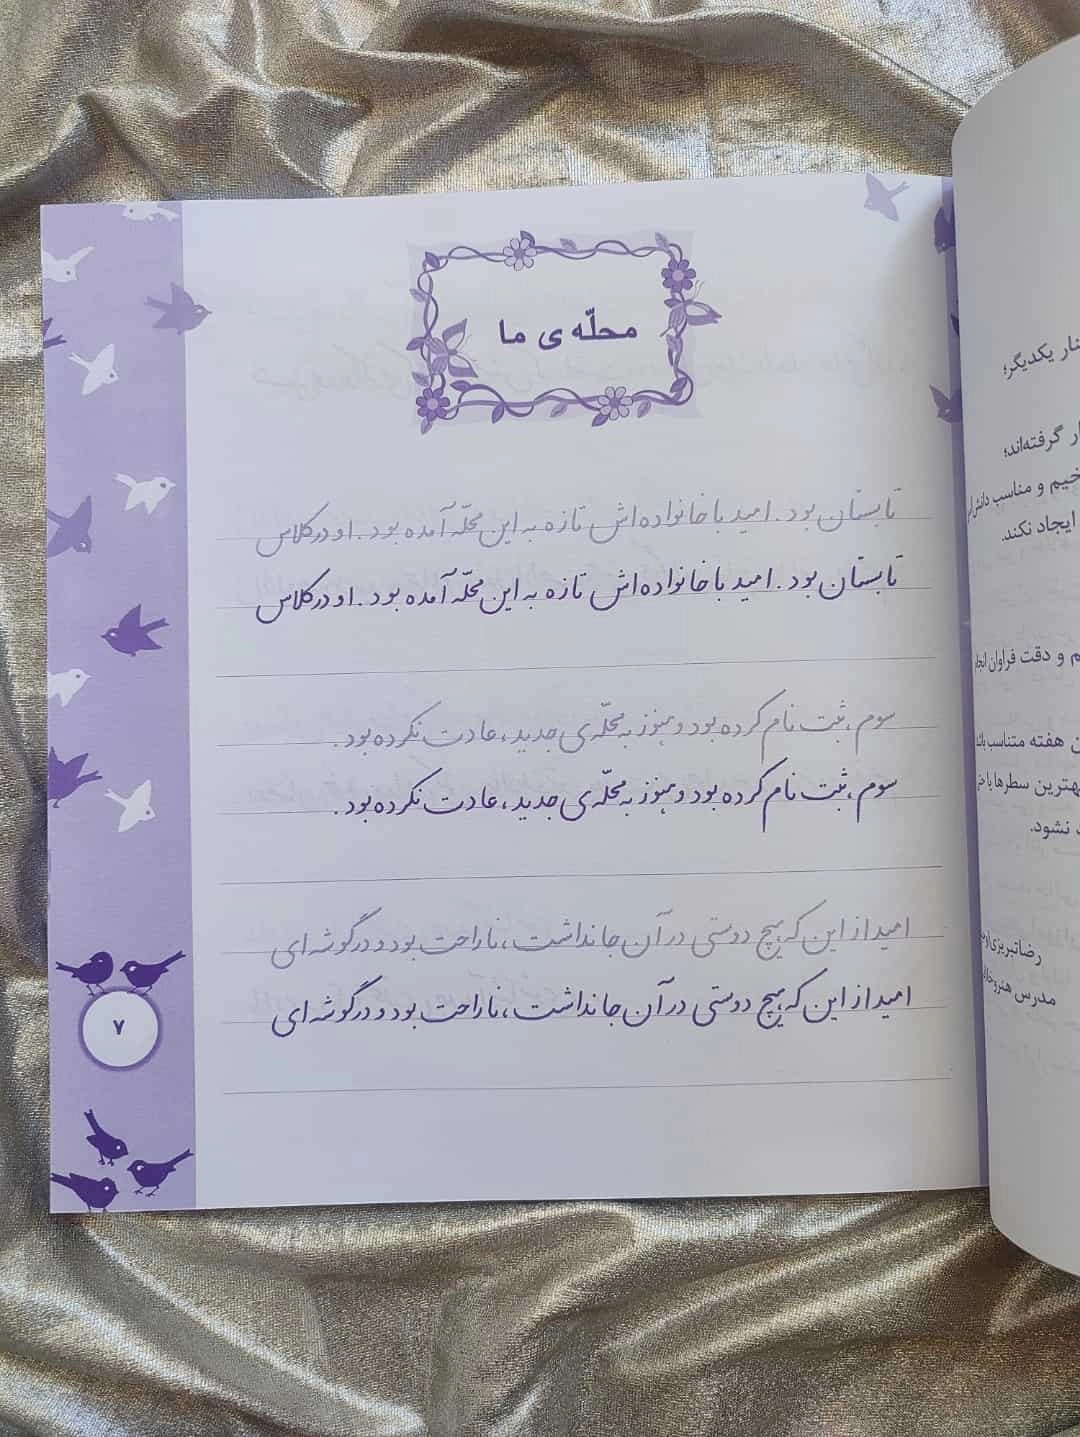 محلّه ی ما
تابستان بود. امید با خانواده اش تازه به این محلّه آمده بود. او در کلاس
تابستان بود. امید با خانواده اش تازه به این محلّه آمده بود. او در کلاس
سوم، ثبت نام کرده بود و هنوز به محلّه ی جدید، عادت نکرده بود.
سوم، ثبت نام کرده بود و هنوز به محلّه ی جدید، عادت نکرده بود.
امید از این که هیچ دوستی در آن جا نداشت، ناراحت بود و در گوشه ای
امید از این که هیچ دوستی در آن جا نداشت، ناراحت بود و در گوشه ای
۷
یکدیگر؛
گرفته‌اند؛
و مناسب
ایجاد نکند.
و دقت فراوان
هفته متناسب
سطرها با
نشود.
رضا تبریزی
مدرس هنر و